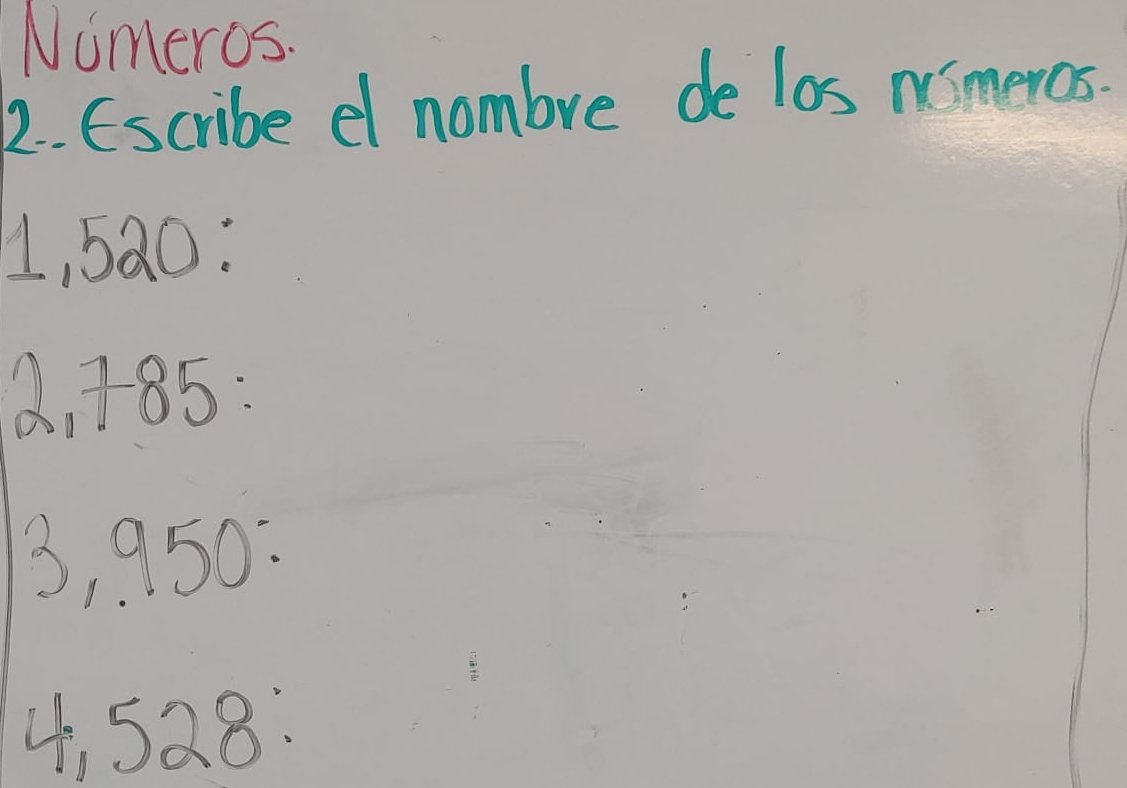 Números.
2.. Escribe el nombre de los números.
1,520:
2,785:
3,950:
4,528: